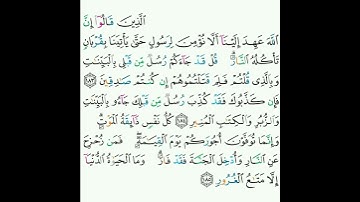 الَّذِينَ قَالُوٓا۟ إِنَّ
اللَّهَ عَهِدَ إِلَيْنَآ أَلَّا نُؤْمِنَ لِرَسُولٍ حَتَّىٰ يَأْتِيَنَا بِقُرْبَانٍ
تَأْكُلُهُ النَّارُ ۗ قُلْ قَدْ جَآءَكُمْ رُسُلٌ مِّن قَبْلِى بِالْبَيِّنَٰتِ
وَبِالَّذِى قُلْتُمْ فَلِمَ قَتَلْتُمُوهُمْ إِن كُنتُمْ صَٰدِقِينَ ﴿١٨٣﴾
فَإِن كَذَّبُوكَ فَقَدْ كُذِّبَ رُسُلٌ مِّن قَبْلِكَ جَآءُو بِالْبَيِّنَٰتِ
وَالزُّبُرِ وَالْكِتَٰبِ الْمُنِيرِ ﴿١٨٤﴾ كُلُّ نَفْسٍ ذَآئِقَةُ الْمَوْتِ ۗ
وَإِنَّمَا تُوَفَّوْنَ أُجُورَكُمْ يَوْمَ الْقِيَٰمَةِ ۖ فَمَن زُحْزِحَ
عَنِ النَّارِ وَأُدْخِلَ الْجَنَّةَ فَقَدْ فَازَ ۗ وَمَا الْحَيَوٰةُ الدُّنْيَآ
إِلَّا مَتَٰعُ الْغُرُورِ ﴿١٨٥﴾